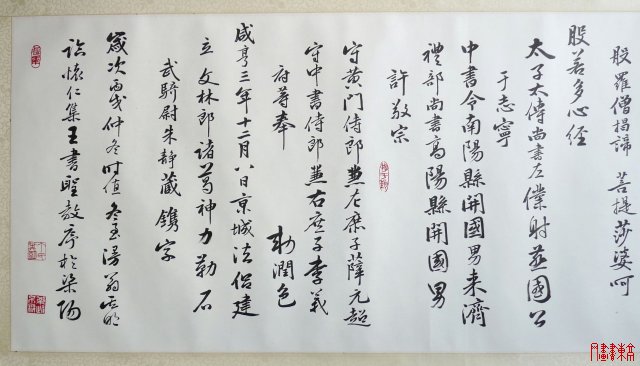 般羅僧揭諦 菩提莎婆呵
般若多心經
太子太傅尚書左僕射燕國公
于志寧
中書令南陽縣開國男来濟
禮部尚書高陽縣開國男
許敬宗
守黄門侍郎兼左庶子薛元超
守中書侍郎兼右庶子李義
府等奉
勅潤色
咸亨三年十二月八日京城法侣建
立 文林郎諸葛神力勒石
武騎尉朱静藏鐫字
歲次丙戌仲冬时值冬至
臨懷仁集王書聖教序於